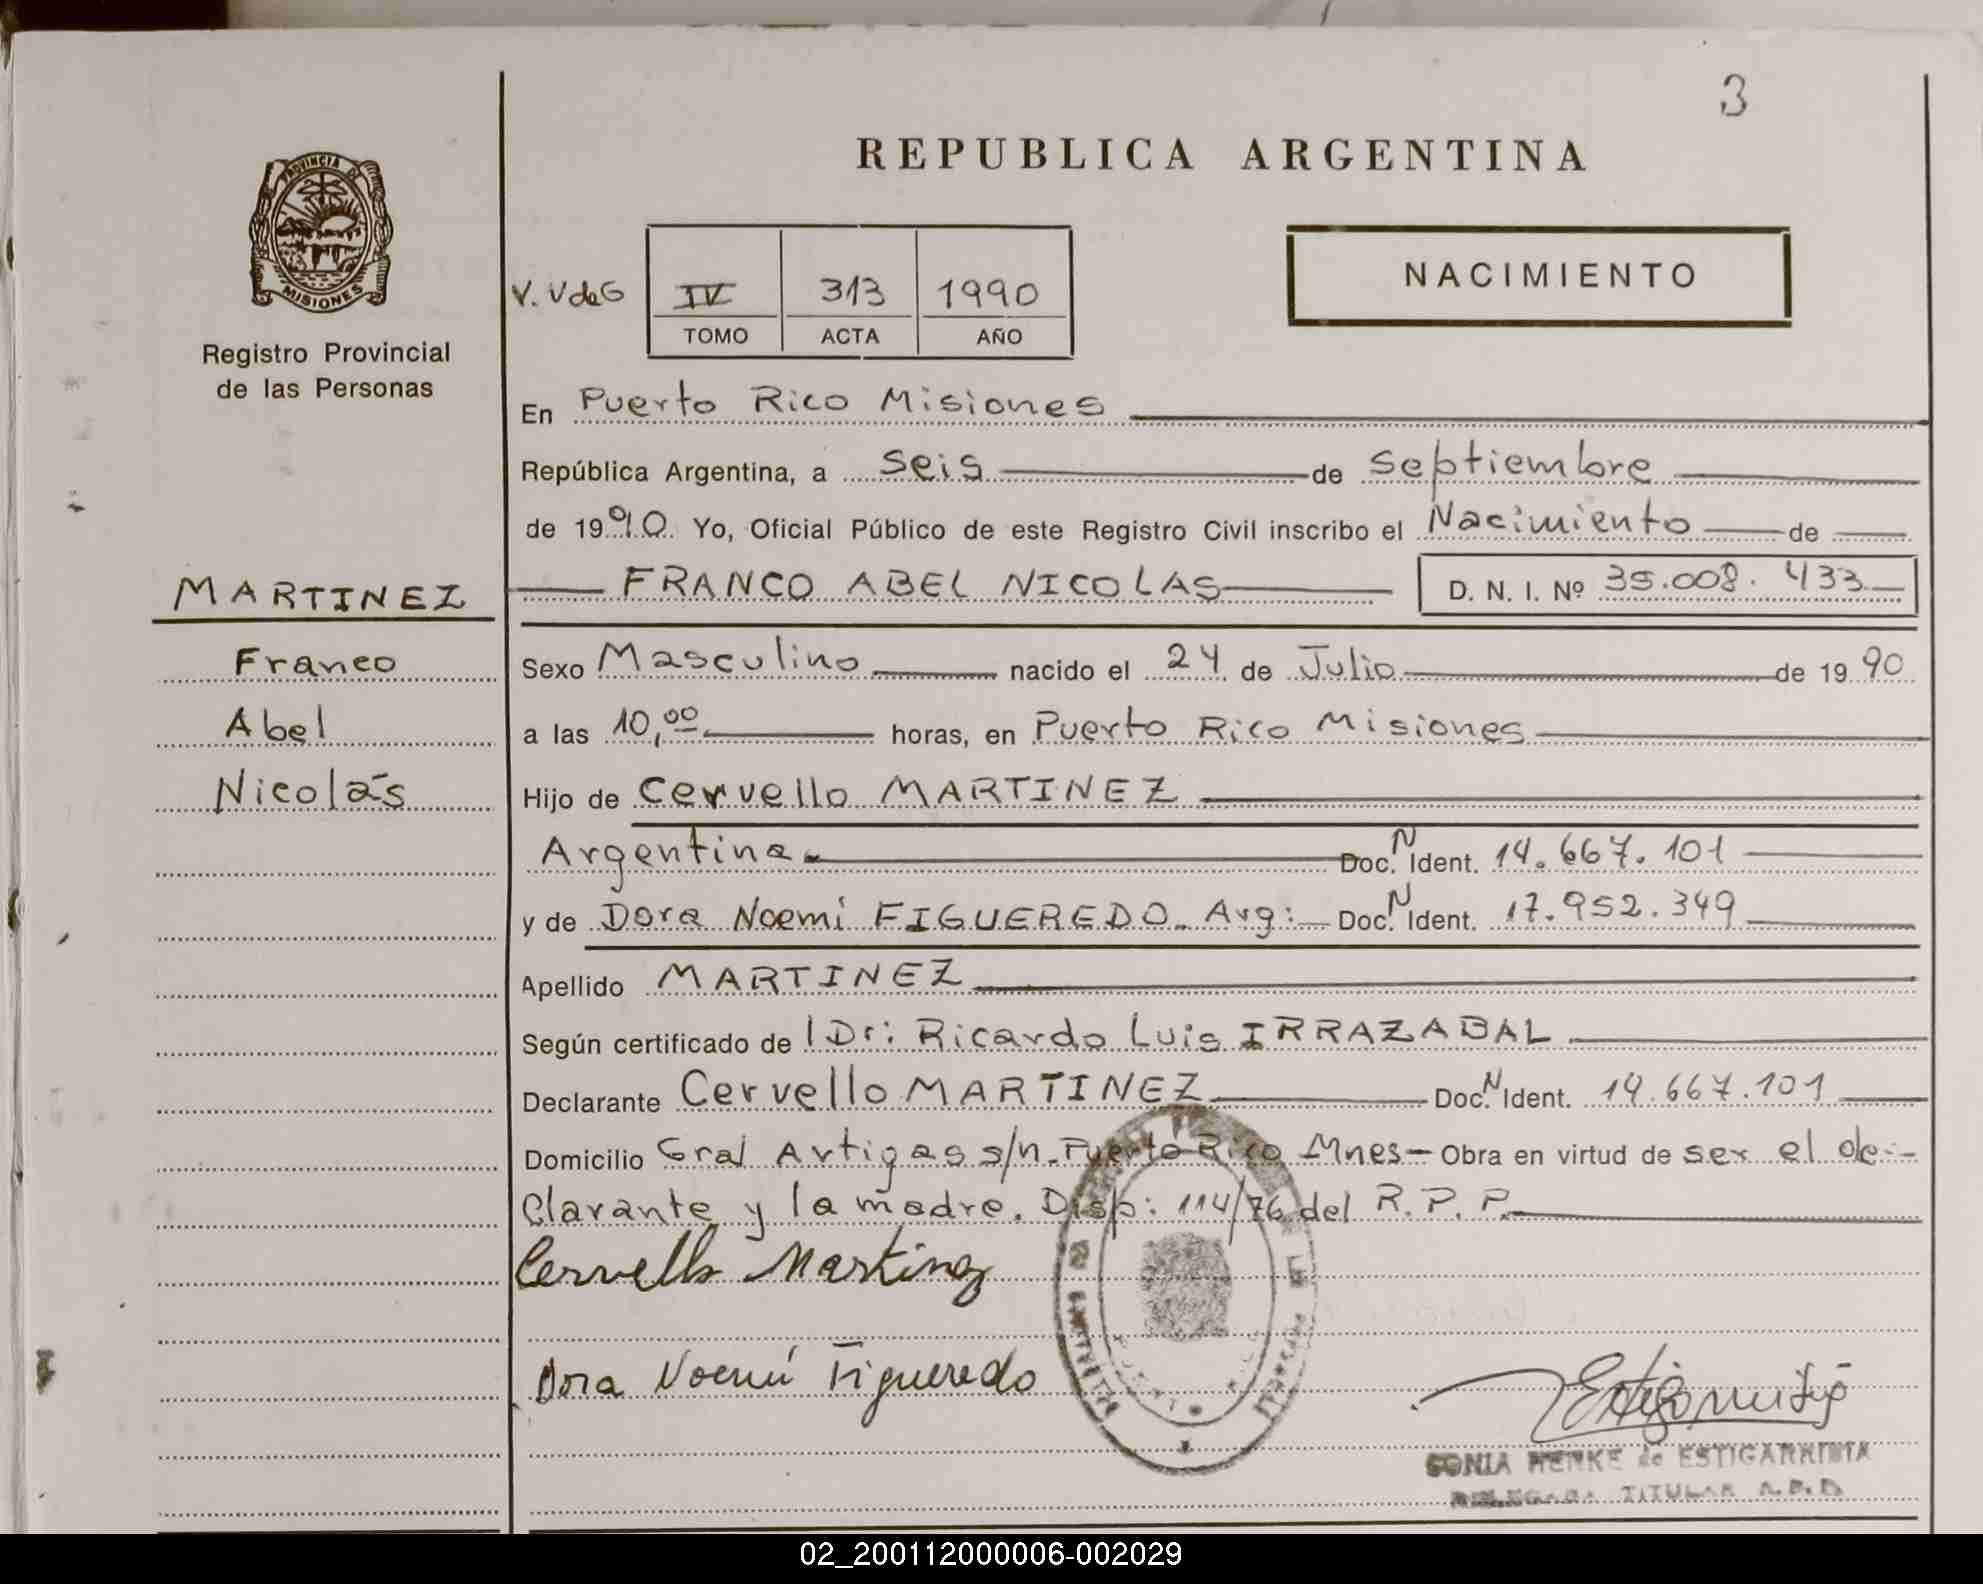 3
REPUBLICA ARGENTINA
PROVINCIA DE
MISIONES
Registro Provincial
de las Personas
V. V de G
IV 313 1990
TOMO ACTA AÑO
NACIMIENTO
En Puerto Rico Misiones
República Argentina, a Seis de Septiembre
de 1990 Yo, Oficial Público de este Registro Civil inscribo el Nacimiento de
FRANCO ABEL NICOLAS D. N. I. Nº 35.008.433
MARTINEZ
Franco
Abel
Nicolás
Sexo Masculino nacido el 24 de Julio de 1990
a las 10,00 horas, en Puerto Rico Misiones
Hijo de Cervello MARTINEZ
Argentina Doc. N Ident. 14.667.101
y de Dora Noemi FIGUEREDO. Arg: Doc. N Ident. 17.952.349
Apellido MARTINEZ
Según certificado de l Dr: Ricardo Luis IRRAZABAL
Declarante Cervello MARTINEZ Doc. N Ident. 14.667.101
Domicilio Gral Artigas s/n. Puerto Rico Mnes- Obra en virtud de ser el de-
clarante y la madre. Disp: 114/76 del R. P. P.
Cervello Martinez
Dora Noemí Figueredo
SONIA HENKE de ESTIGARRIBIA
DELEGADA TITULAR
02_200112000006-002029